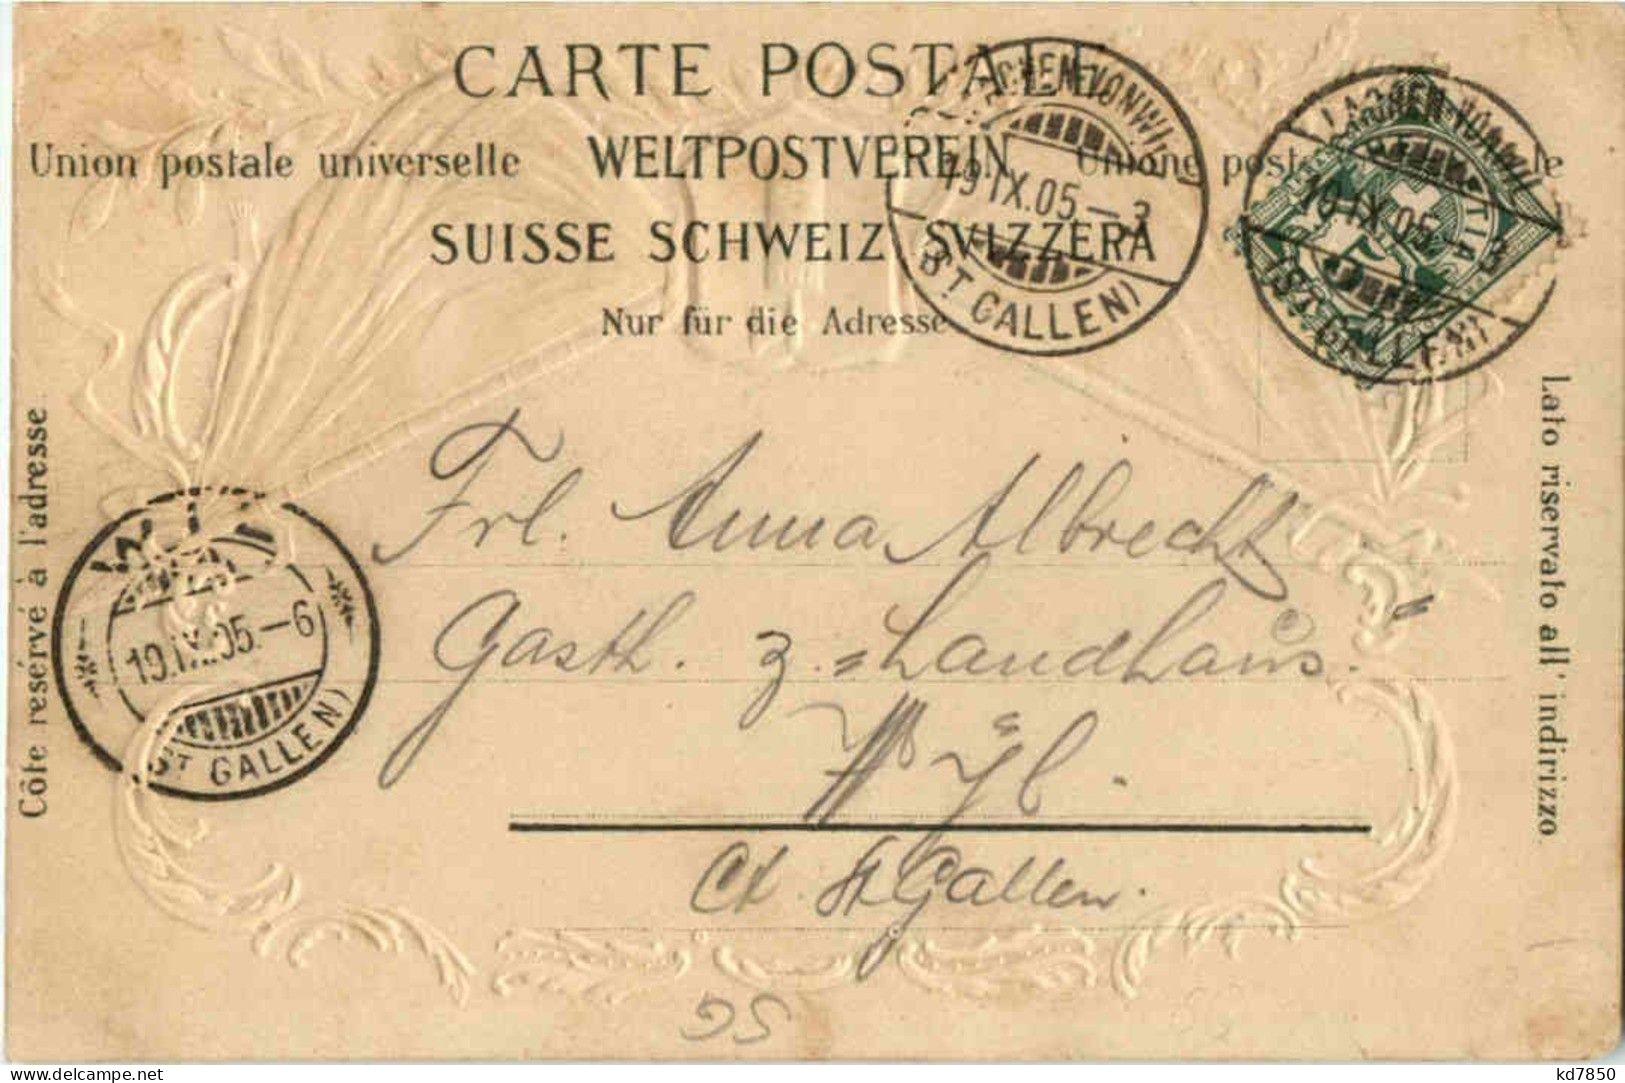 CARTE POSTALE
Union postale universelle WELTPOSTVEREIN Unione postale
SUISSE SCHWEIZ SVIZZERA
Nur für die Adresse
LACHEN-VONWIL
19.IX.05-3
(ST GALLEN)
LACHEN-VONWIL
19.IX.05-3
(ST GALLEN)
Côte resérvé à l'adresse
Lato riservato all' indirizzo
WYL
19.IX.05-6
(ST GALLEN)
Frl. Anna Albrecht
Gasth. z. "Landhaus"
Wÿl.
Ct. St. Gallen.
delcampe.net
kd7850